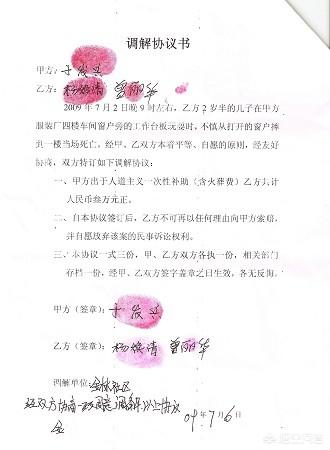 调解协议书
甲方：于发兴
乙方：杨焕清 曾丽华
2009年7月2日晚9时左右，乙方2岁半的儿子在甲方
服装厂四楼车间窗户旁的工作台板玩耍时，不慎从打开的窗户摔
到一楼当场死亡，经甲、乙双方本着平等、自愿的原则，经友好
协商，双方特订如下调解协议：
一、甲方出于人道主义一次性补助（含火葬费）乙方共计
人民币叁万元正。
二、自本协议签订后，乙方不可再以任何理由向甲方索赔，
并自愿放弃该案的民事诉讼权利。
三、本协议一式三份，甲、乙双方各执一份，相关部门
存档一份，经甲、乙双方签字盖章之日生效，各无反悔。
甲方（签章）：于发兴
乙方（签章）：杨焕清 曾丽华
调解单位：
经双方协商一致同意调解以上协议
09年7月6日
悟空问答